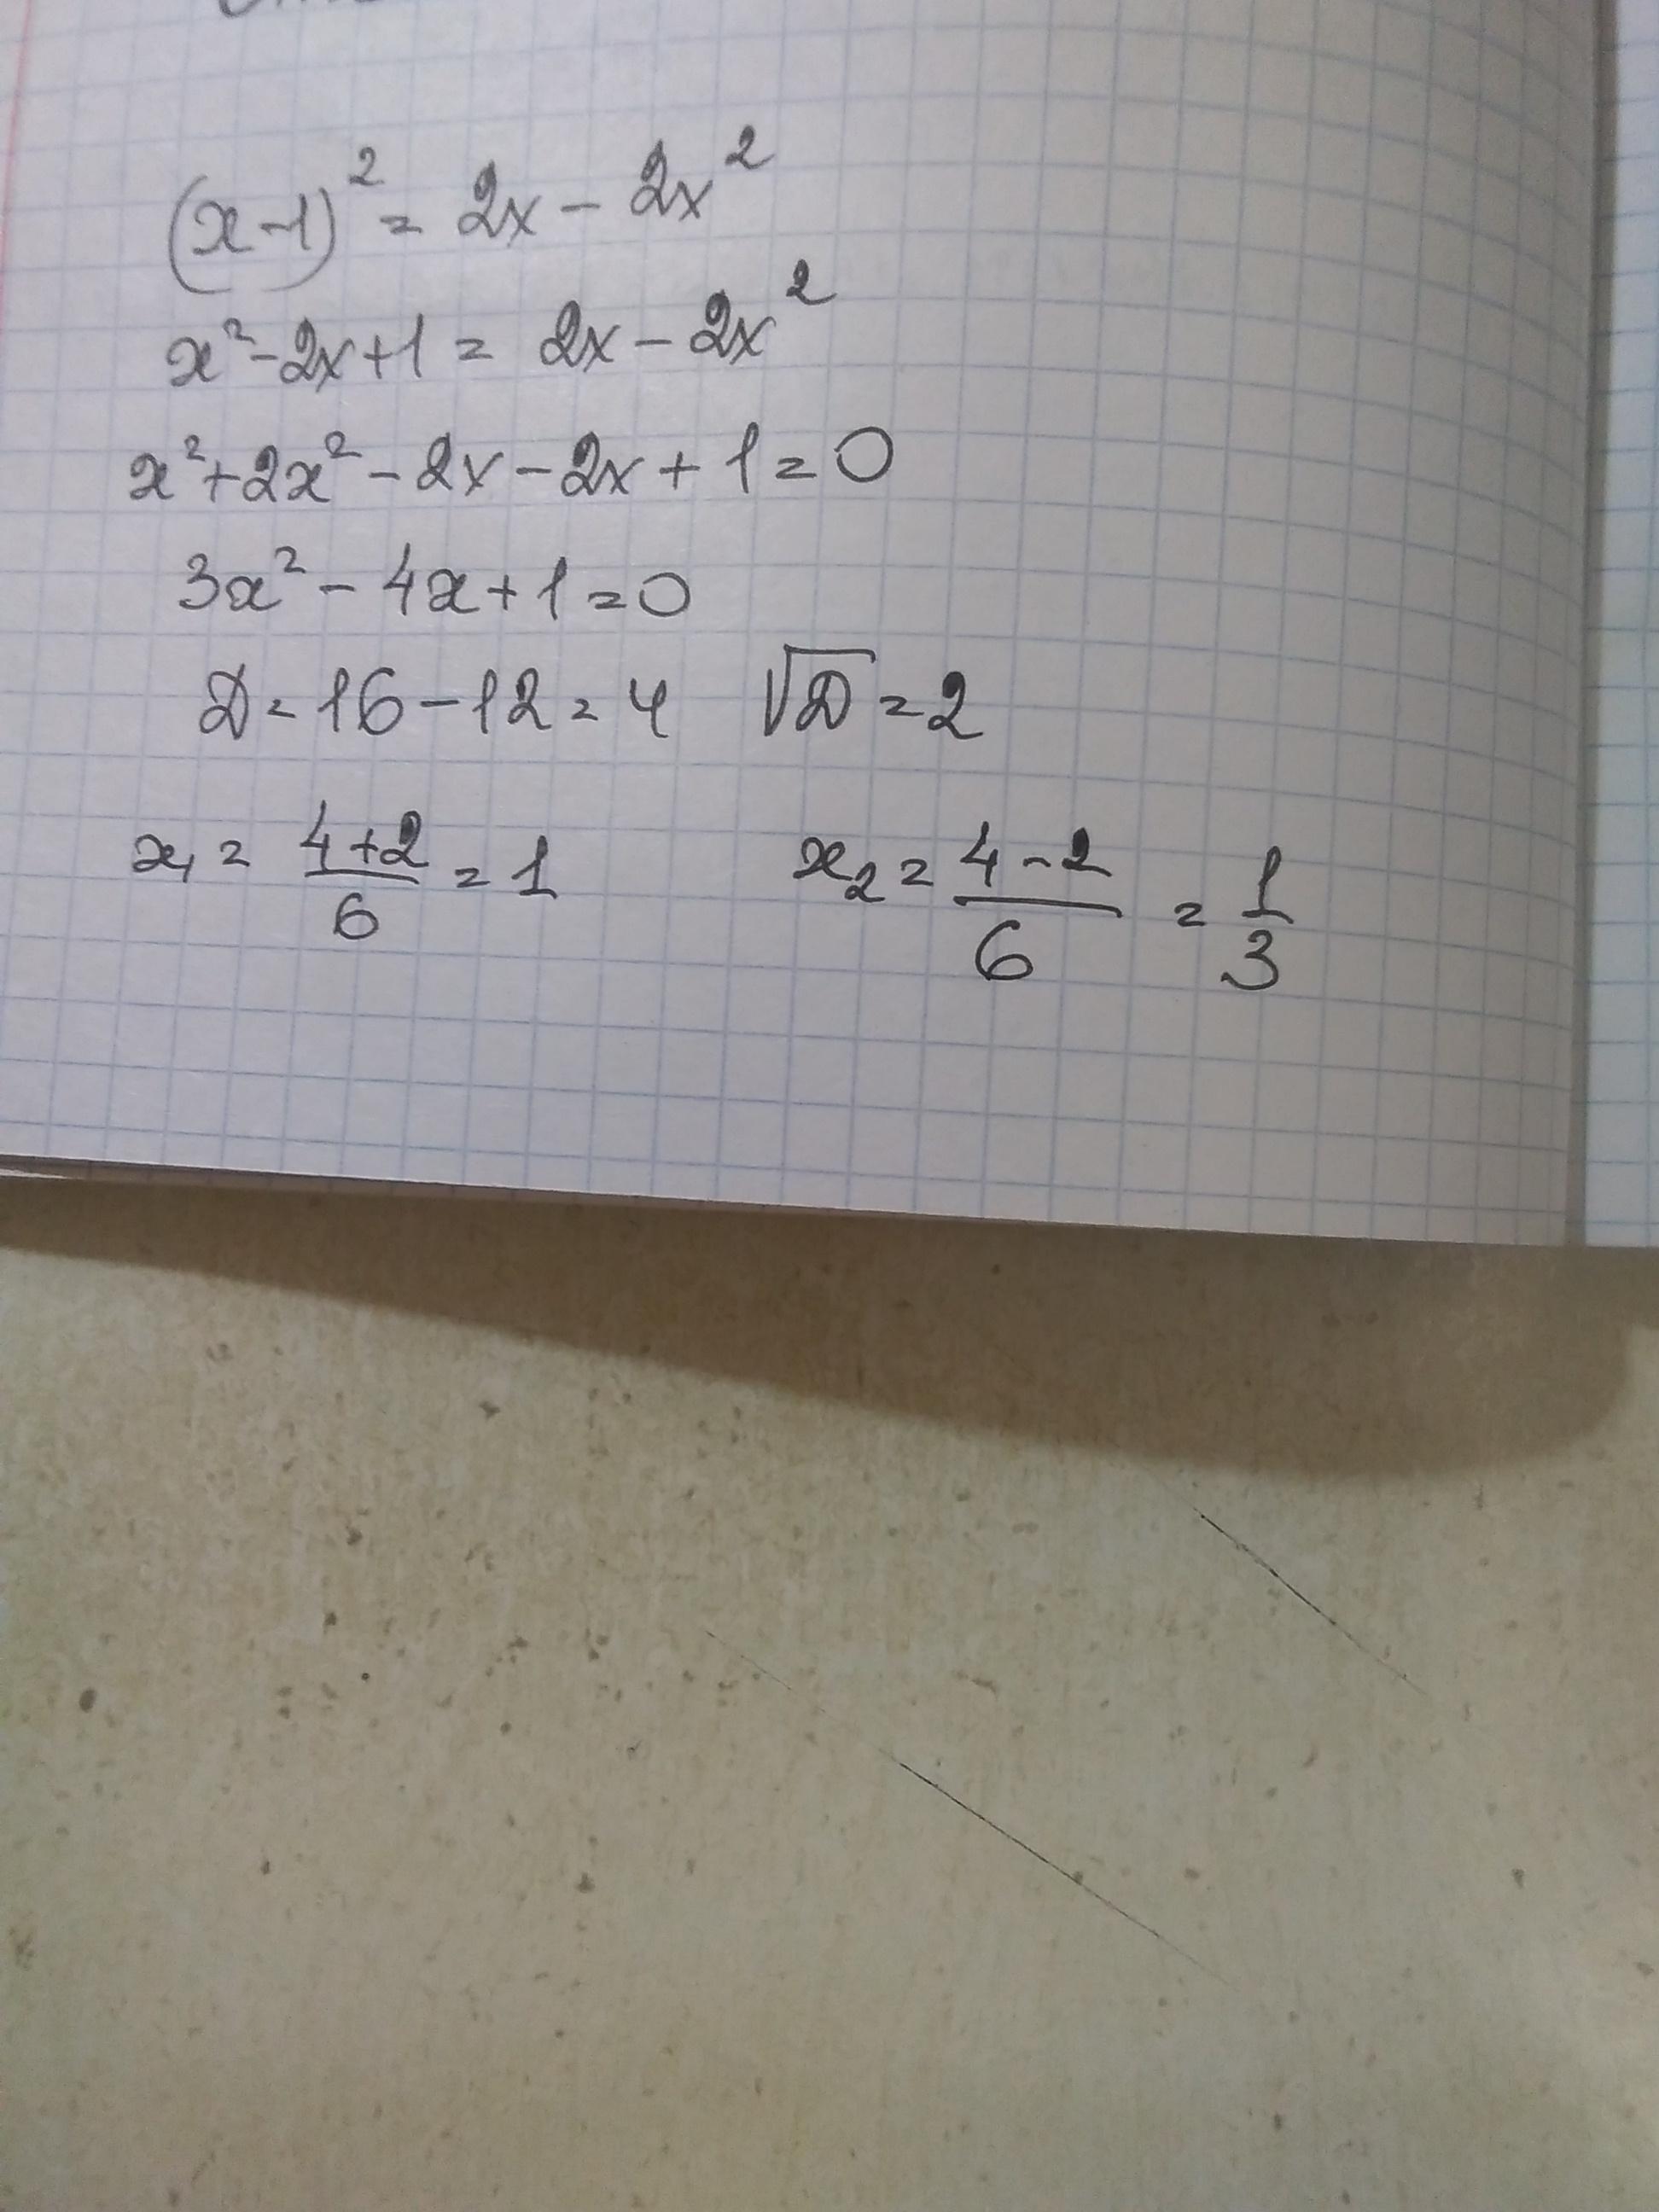 (x-1)² = 2x - 2x²
x² - 2x + 1 = 2x - 2x²
x² + 2x² - 2x - 2x + 1 = 0
3x² - 4x + 1 = 0
D = 16 - 12 = 4 √D = 2
x₁ = (4+2)/6 = 1 x₂ = (4-2)/6 = 1/3